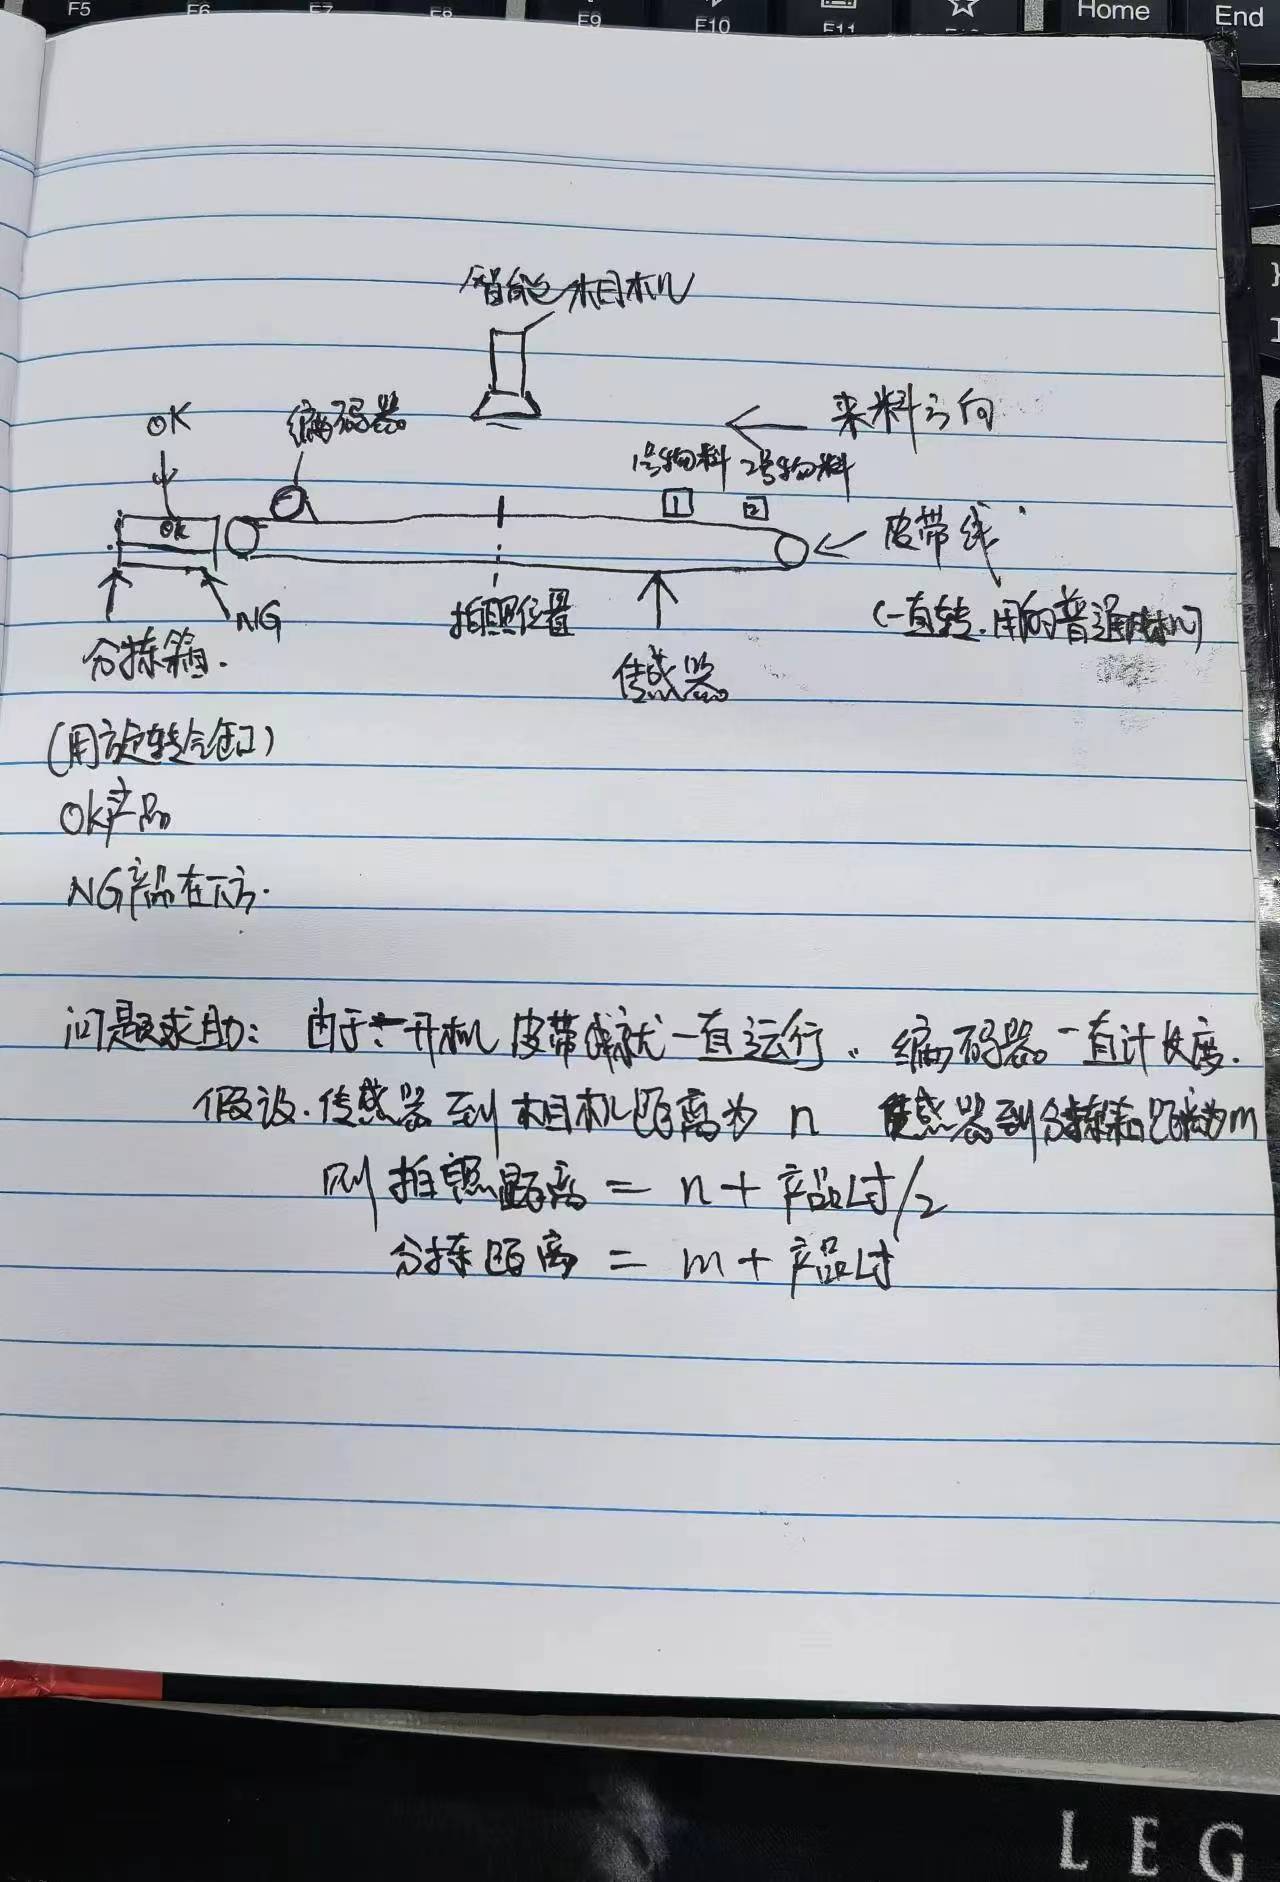 F5
F6
F7
F8
F9
F10
F11
Home
End
智能相机
OK
编码器
来料方向
1号物料 2号物料
1
2
OK
皮带线
NG
拍照位置
(一直转.用的普通电机)
分拣箱.
传感器
(用旋转气缸)
OK产品
NG产品在下方.
问题求助: 由于一开机皮带线就一直运行。编码器一直计长度.
假设.传感器到相机距离为n 传感器到分拣箱距离为m
则拍照距离 = n + 产品尺寸/2
分拣距离 = m + 产品尺寸
LEG